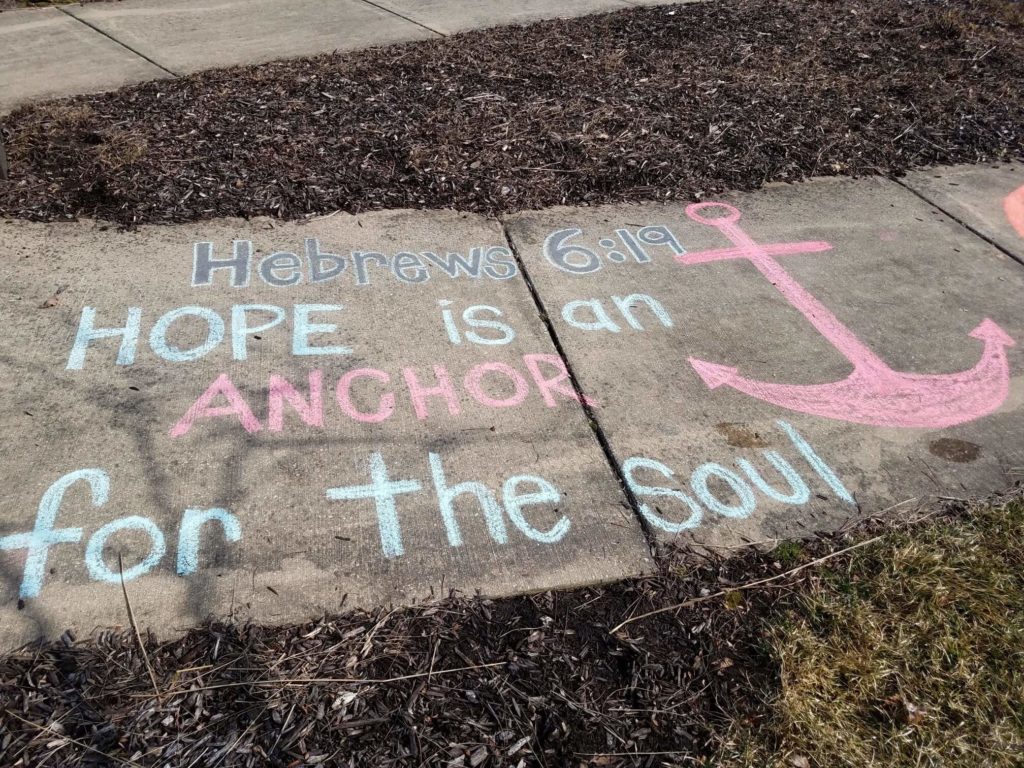 Hebrews 6:19
HOPE is an
ANCHOR
for the soul